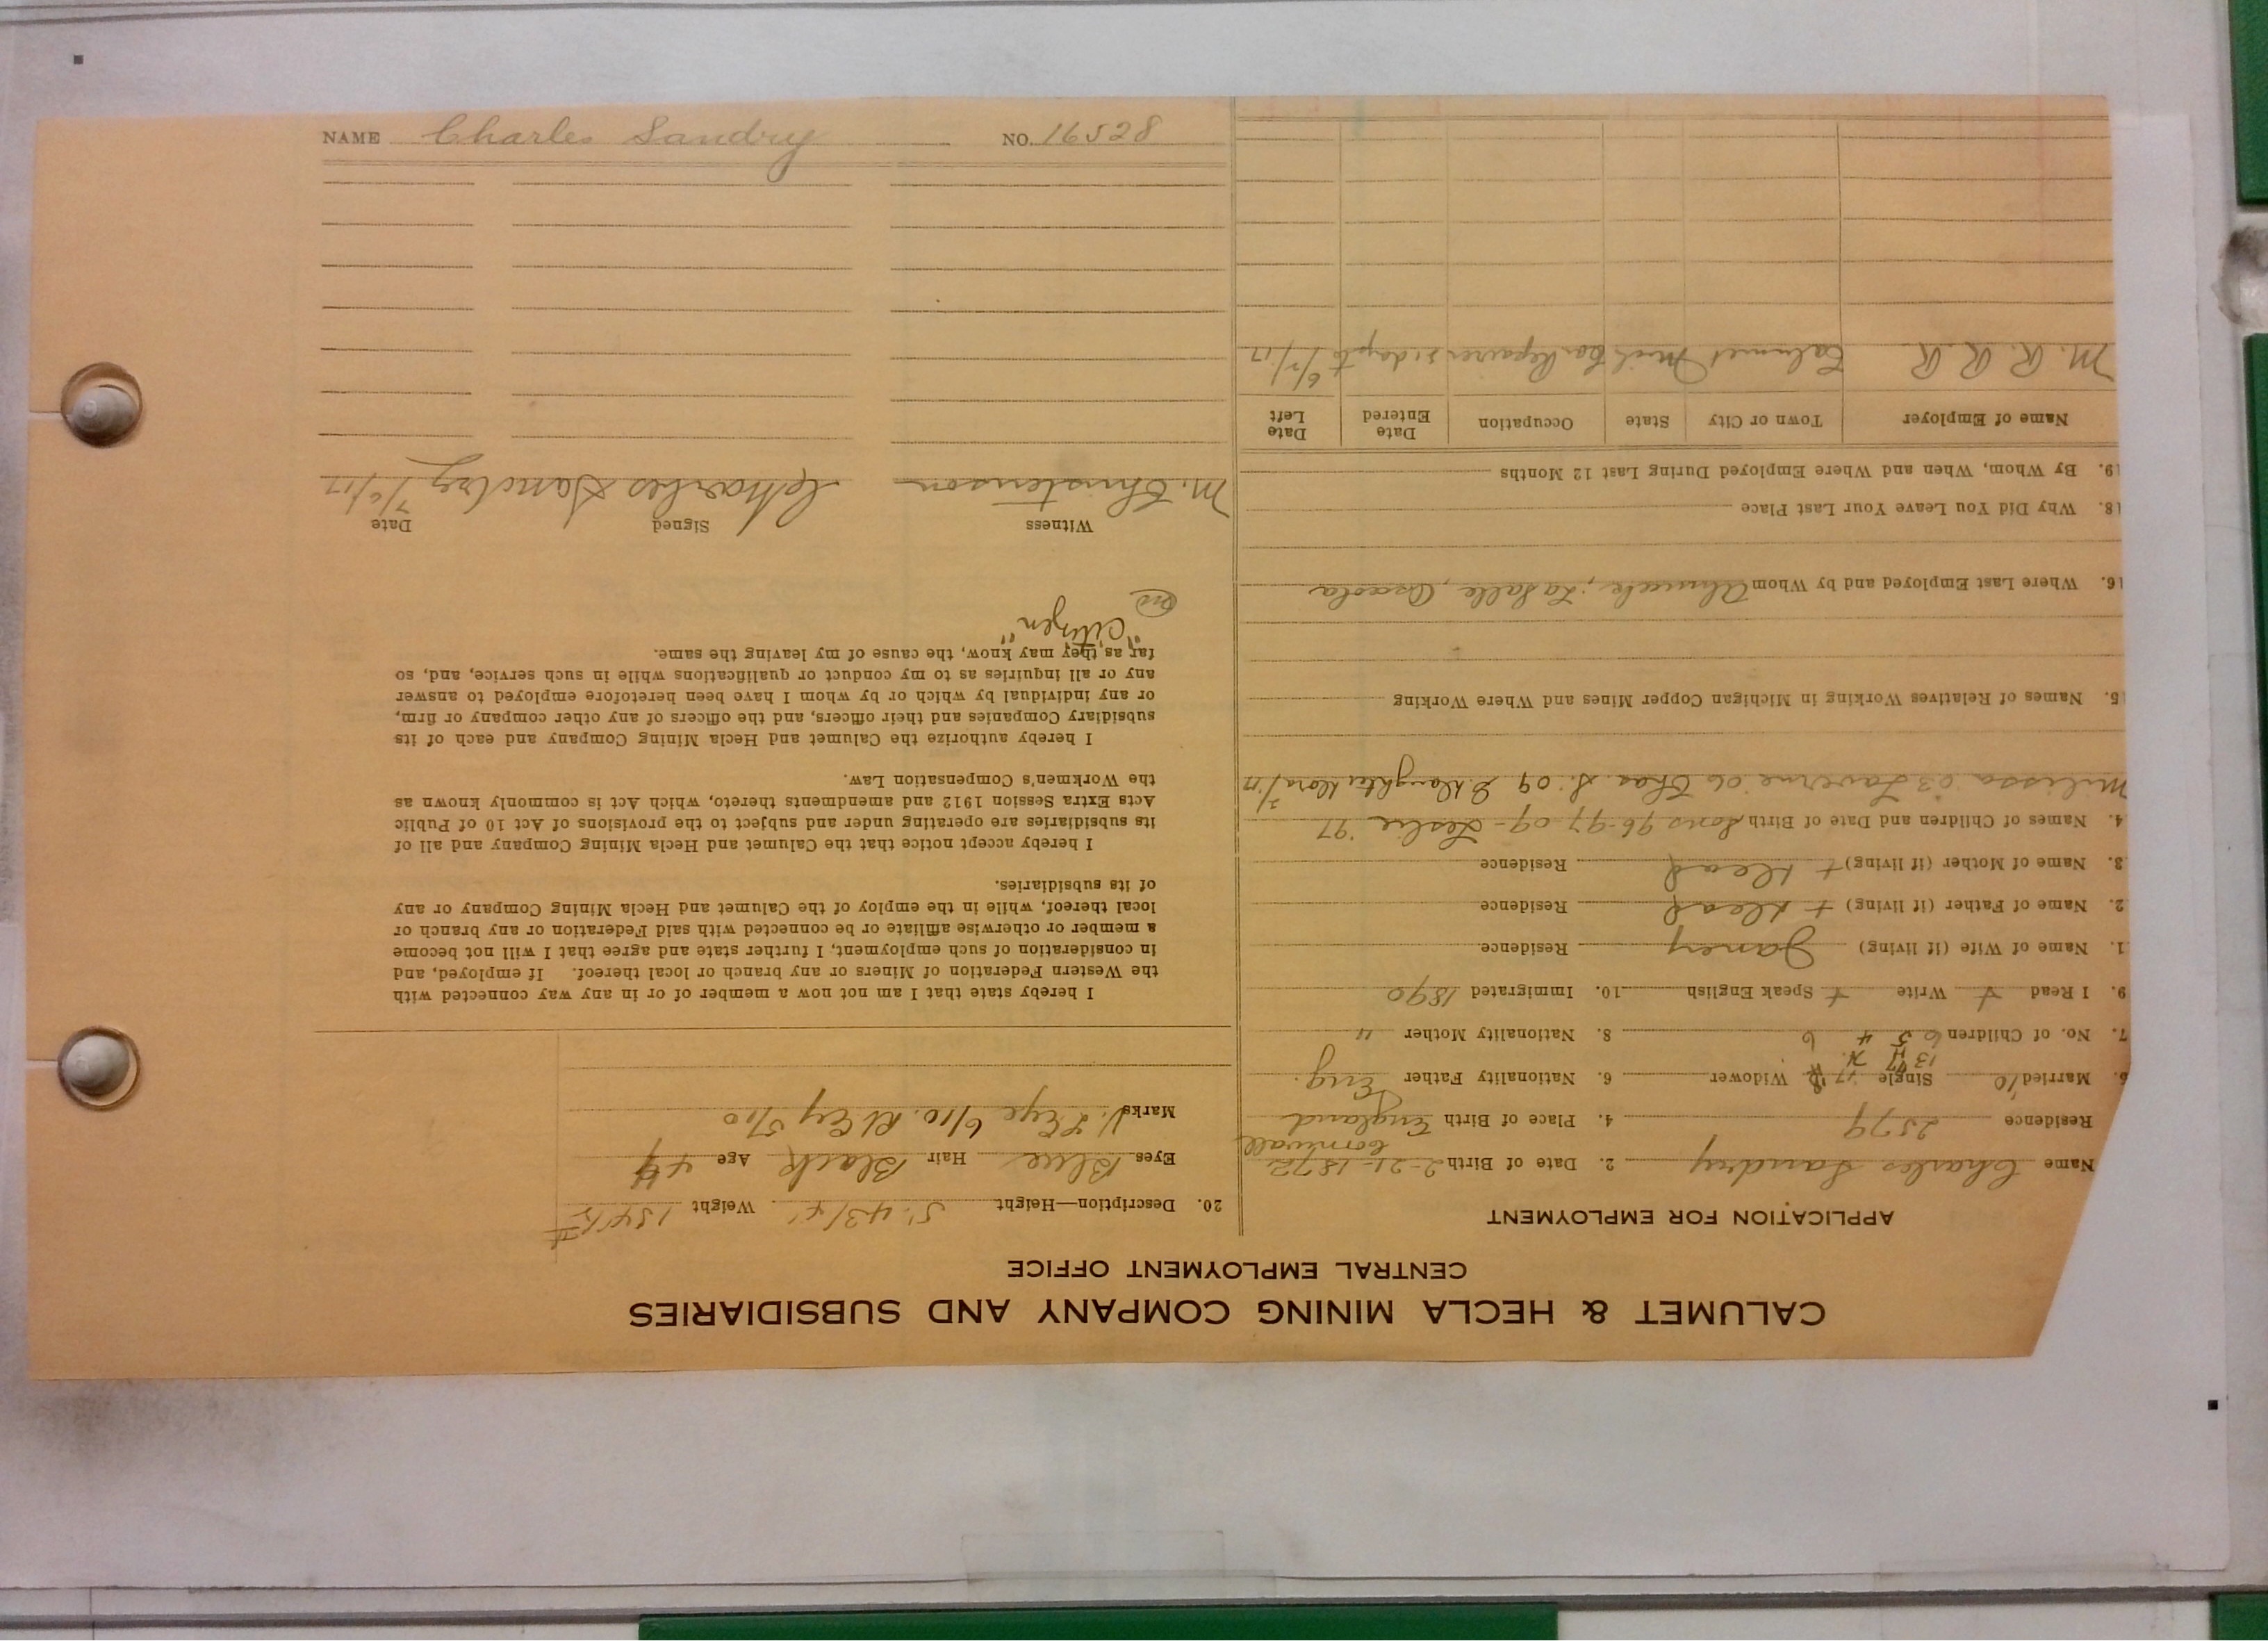 CALUMET & HECLA MINING COMPANY AND SUBSIDIARIES
CENTRAL EMPLOYMENT OFFICE
APPLICATION FOR EMPLOYMENT
Name Charles Sandry 2. Date of Birth 2-21-1872
Cornwall
Residence 2579 4. Place of Birth England
5. Married 10 Single Widower 6. Nationality Father Eng.
7. No. of Children 6 5 4 6 8. Nationality Mother "
9. I Read + Write + Speak English 10. Immigrated 1890
1. Name of Wife (if living) Janey Residence
2. Name of Father (if living) + dead Residence
3. Name of Mother (if living) + dead Residence
4. Names of Children and Date of Birth Sons 96-97 09 - Leslie '97
Melissa 03 Laverne 06 Chas. S. 09 2 daughter
5. Names of Relatives Working in Michigan Copper Mines and Where Working
16. Where Last Employed and by Whom Ahmeek, LaSalle, Osceola
18. Why Did You Leave Your Last Place
19. By Whom, When and Where Employed During Last 12 Months
Name of Employer Town or City State Occupation Date Entered Date Left
M. R. R. R. Calumet Mich Car Repairer 21 days to 6/7/17
20. Description—Height 5' 4 3/4" Weight 154 1/2 #
Eyes Blue Hair Black Age 44
Marks V. L Eye 6/10. Rt Ey 5/10
I hereby state that I am not now a member of or in any way connected with
the Western Federation of Miners or any branch or local thereof. If employed, and
in consideration of such employment, I further state and agree that I will not become
a member or otherwise affiliate or be connected with said Federation or any branch or
local thereof, while in the employ of the Calumet and Hecla Mining Company or any
of its subsidiaries.
I hereby accept notice that the Calumet and Hecla Mining Company and all of
its subsidiaries are operating under and subject to the provisions of Act 10 of Public
Acts Extra Session 1912 and amendments thereto, which Act is commonly known as
the Workmen's Compensation Law.
I hereby authorize the Calumet and Hecla Mining Company and each of its
subsidiary Companies and their officers, and the officers of any other company or firm,
or any individual by which or by whom I have been heretofore employed to answer
any or all inquiries as to my conduct or qualifications while in such service, and, so
far as they may know, the cause of my leaving the same.
"Citizen"
Witness Signed Date
M. Christenson Charles Sandrey 7/6/17
NAME Charles Sandry NO. 16528